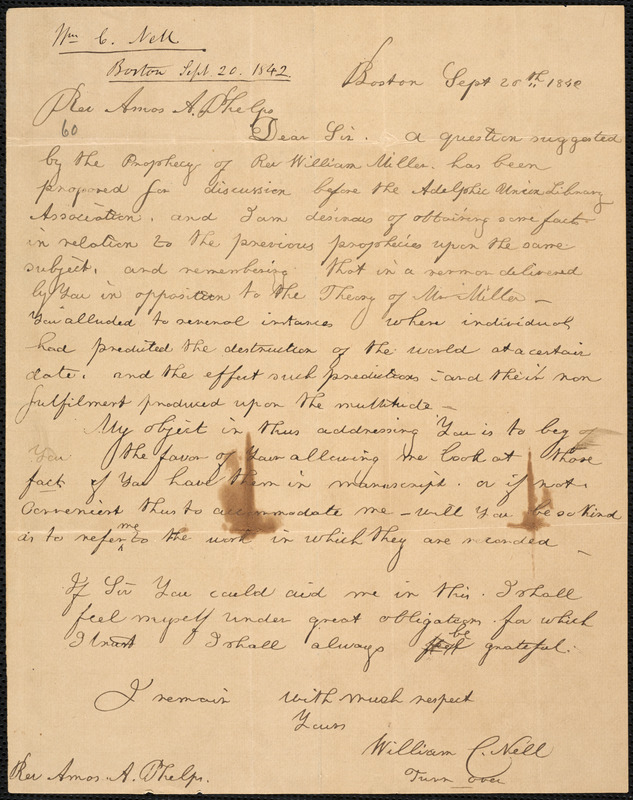 Wm C. Nell
Boston Sept. 20. 1842
Boston Sept 20th 1842
Rev Amos A. Phelps
60
Dear Sir. A question suggested
by the Prophecy of Rev William Miller. has been
proposed for discussion before the Adelphic Union Library
Association. and I am desirous of obtaining some facts
in relation to the previous prophecies upon the same
subject. and remembering that in a sermon delivered
by You in opposition to the Theory of Mr Miller –
You alluded to several instances where individuals
had predicted the destruction of the world at a certain
date. and the effect such predictions – and their non
fulfilment produced upon the multitude –
My object in thus addressing You is to beg of
You the favor of Your allowing me look at those
facts if You have them in manuscript. or if not
convenient thus to accommodate me – will You be so kind
as to refer me to the work in which they are recorded –
If Sir You could aid me in this. I shall
feel myself under great obligations for which
I trust I shall always be grateful.
I remain with much respect
Yours
William C. Nell
Turn over
Rev Amos A. Phelps.